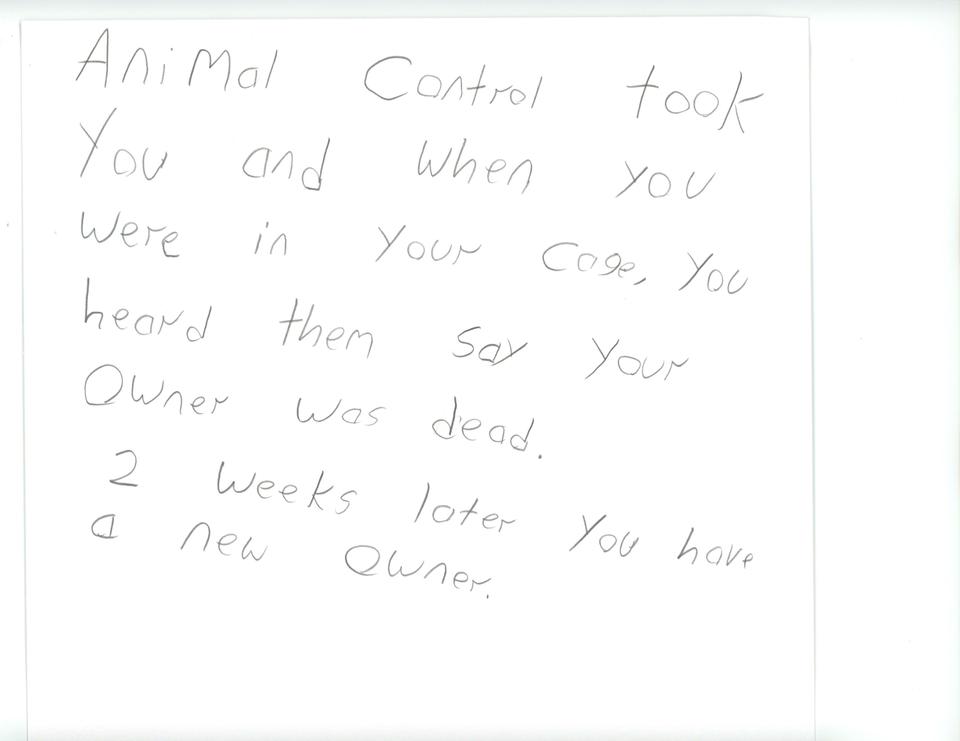 Animal Control took
You and when you
were in your cage, you
heard them say your
Owner was dead.
2 weeks later you have
a new owner.